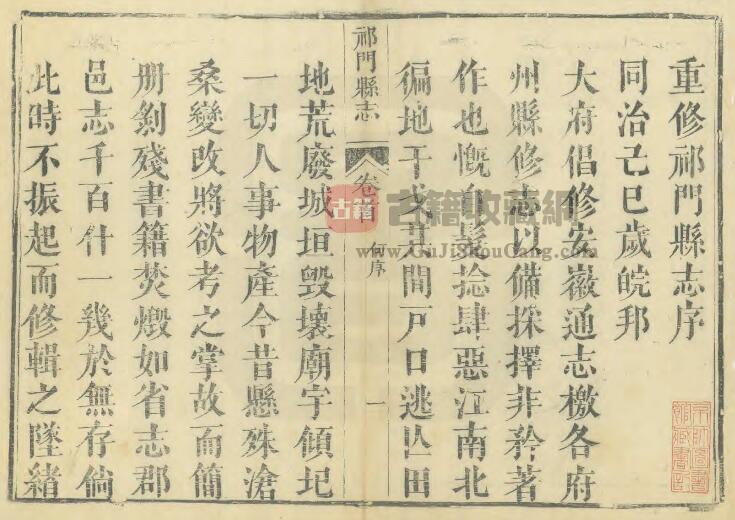 重修祁門縣志序
同治己巳歲皖邦
大府倡修安徽通志檄各府
州縣修志以備採擇非矜著
作也慨自髮捻肆惡江南北
徧地干戈其間戶口逃亾田
祁門縣志
卷
何序
一
地荒廢城垣毀壞廟宇傾圮
一切人事物產今昔懸殊滄
桑變改將欲考之掌故而簡
册剝殘書籍焚燬如省志郡
邑志千百什一幾於無存倘
此時不振起而修輯之墜緒
古籍
古籍收藏網
www.GuJiShouCang.com